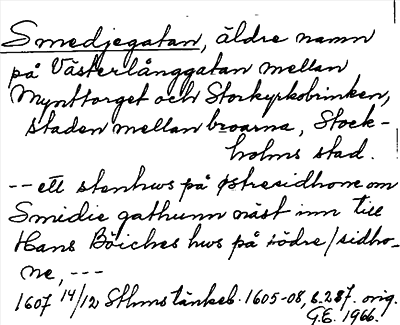 Smedjegatan, äldre namn
på Västerlånggatan mellan
Mynttorget och Storkyrkobrinken,
staden mellan broarna, Stock-
holms stad.
-- ett stenhws på østresidhone om
Smidie gathunn näst inn till
Hans Böiches hws på södre/sidho-
ne, ---
1607 14/12 Sthms tänkeb. 1605-08, s. 287. orig.
G.E. 1966.